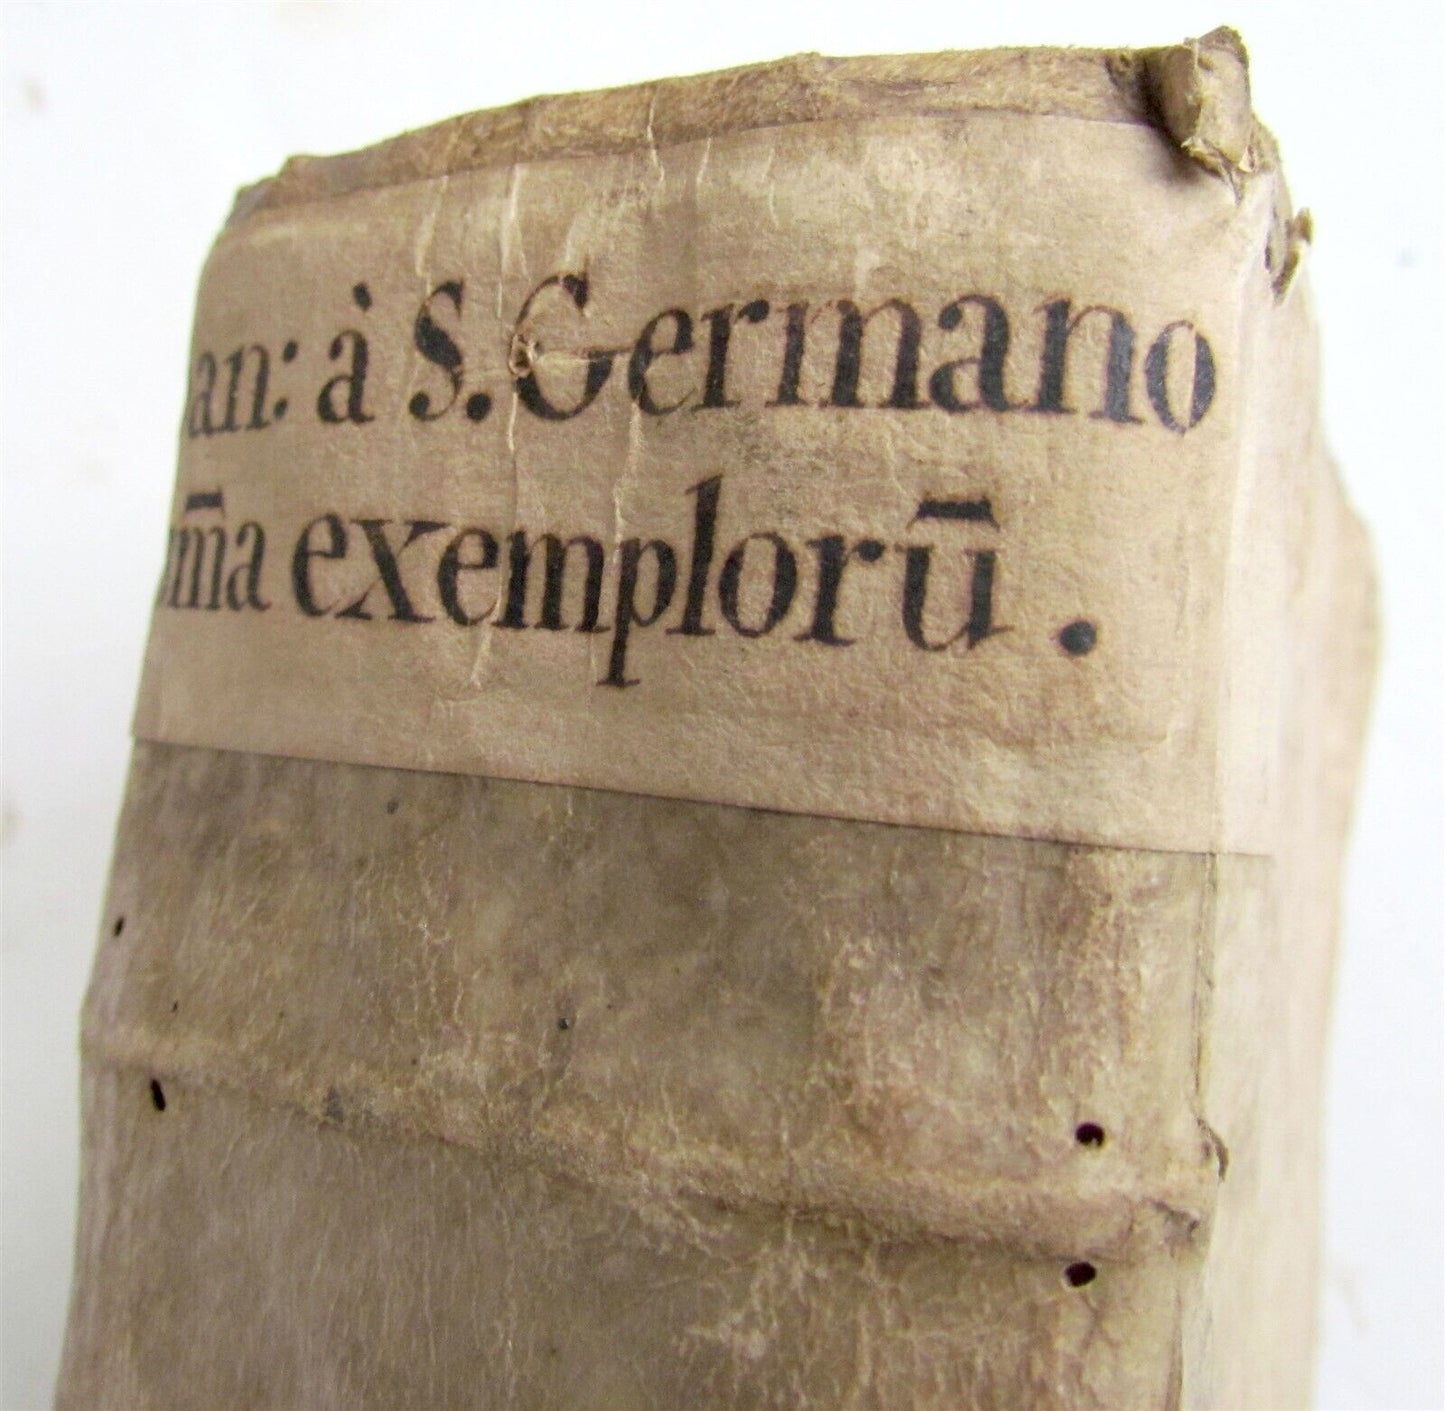 an: à S. Germano
m̄a exemplorū.